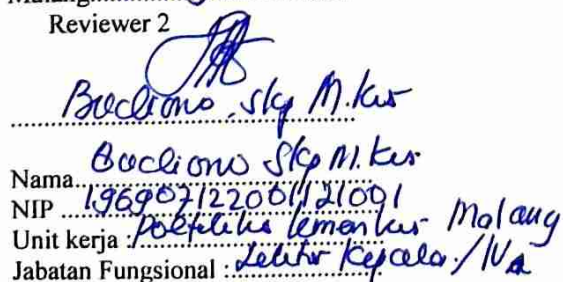 Malang
Reviewer 2
Budiono, Skp M.Kes
Nama Budiono Skp M.Kes
NIP 196907122001121001
Unit kerja : Poltekkes Kemenkes Malang
Jabatan Fungsional : Lektor Kepala / IVa